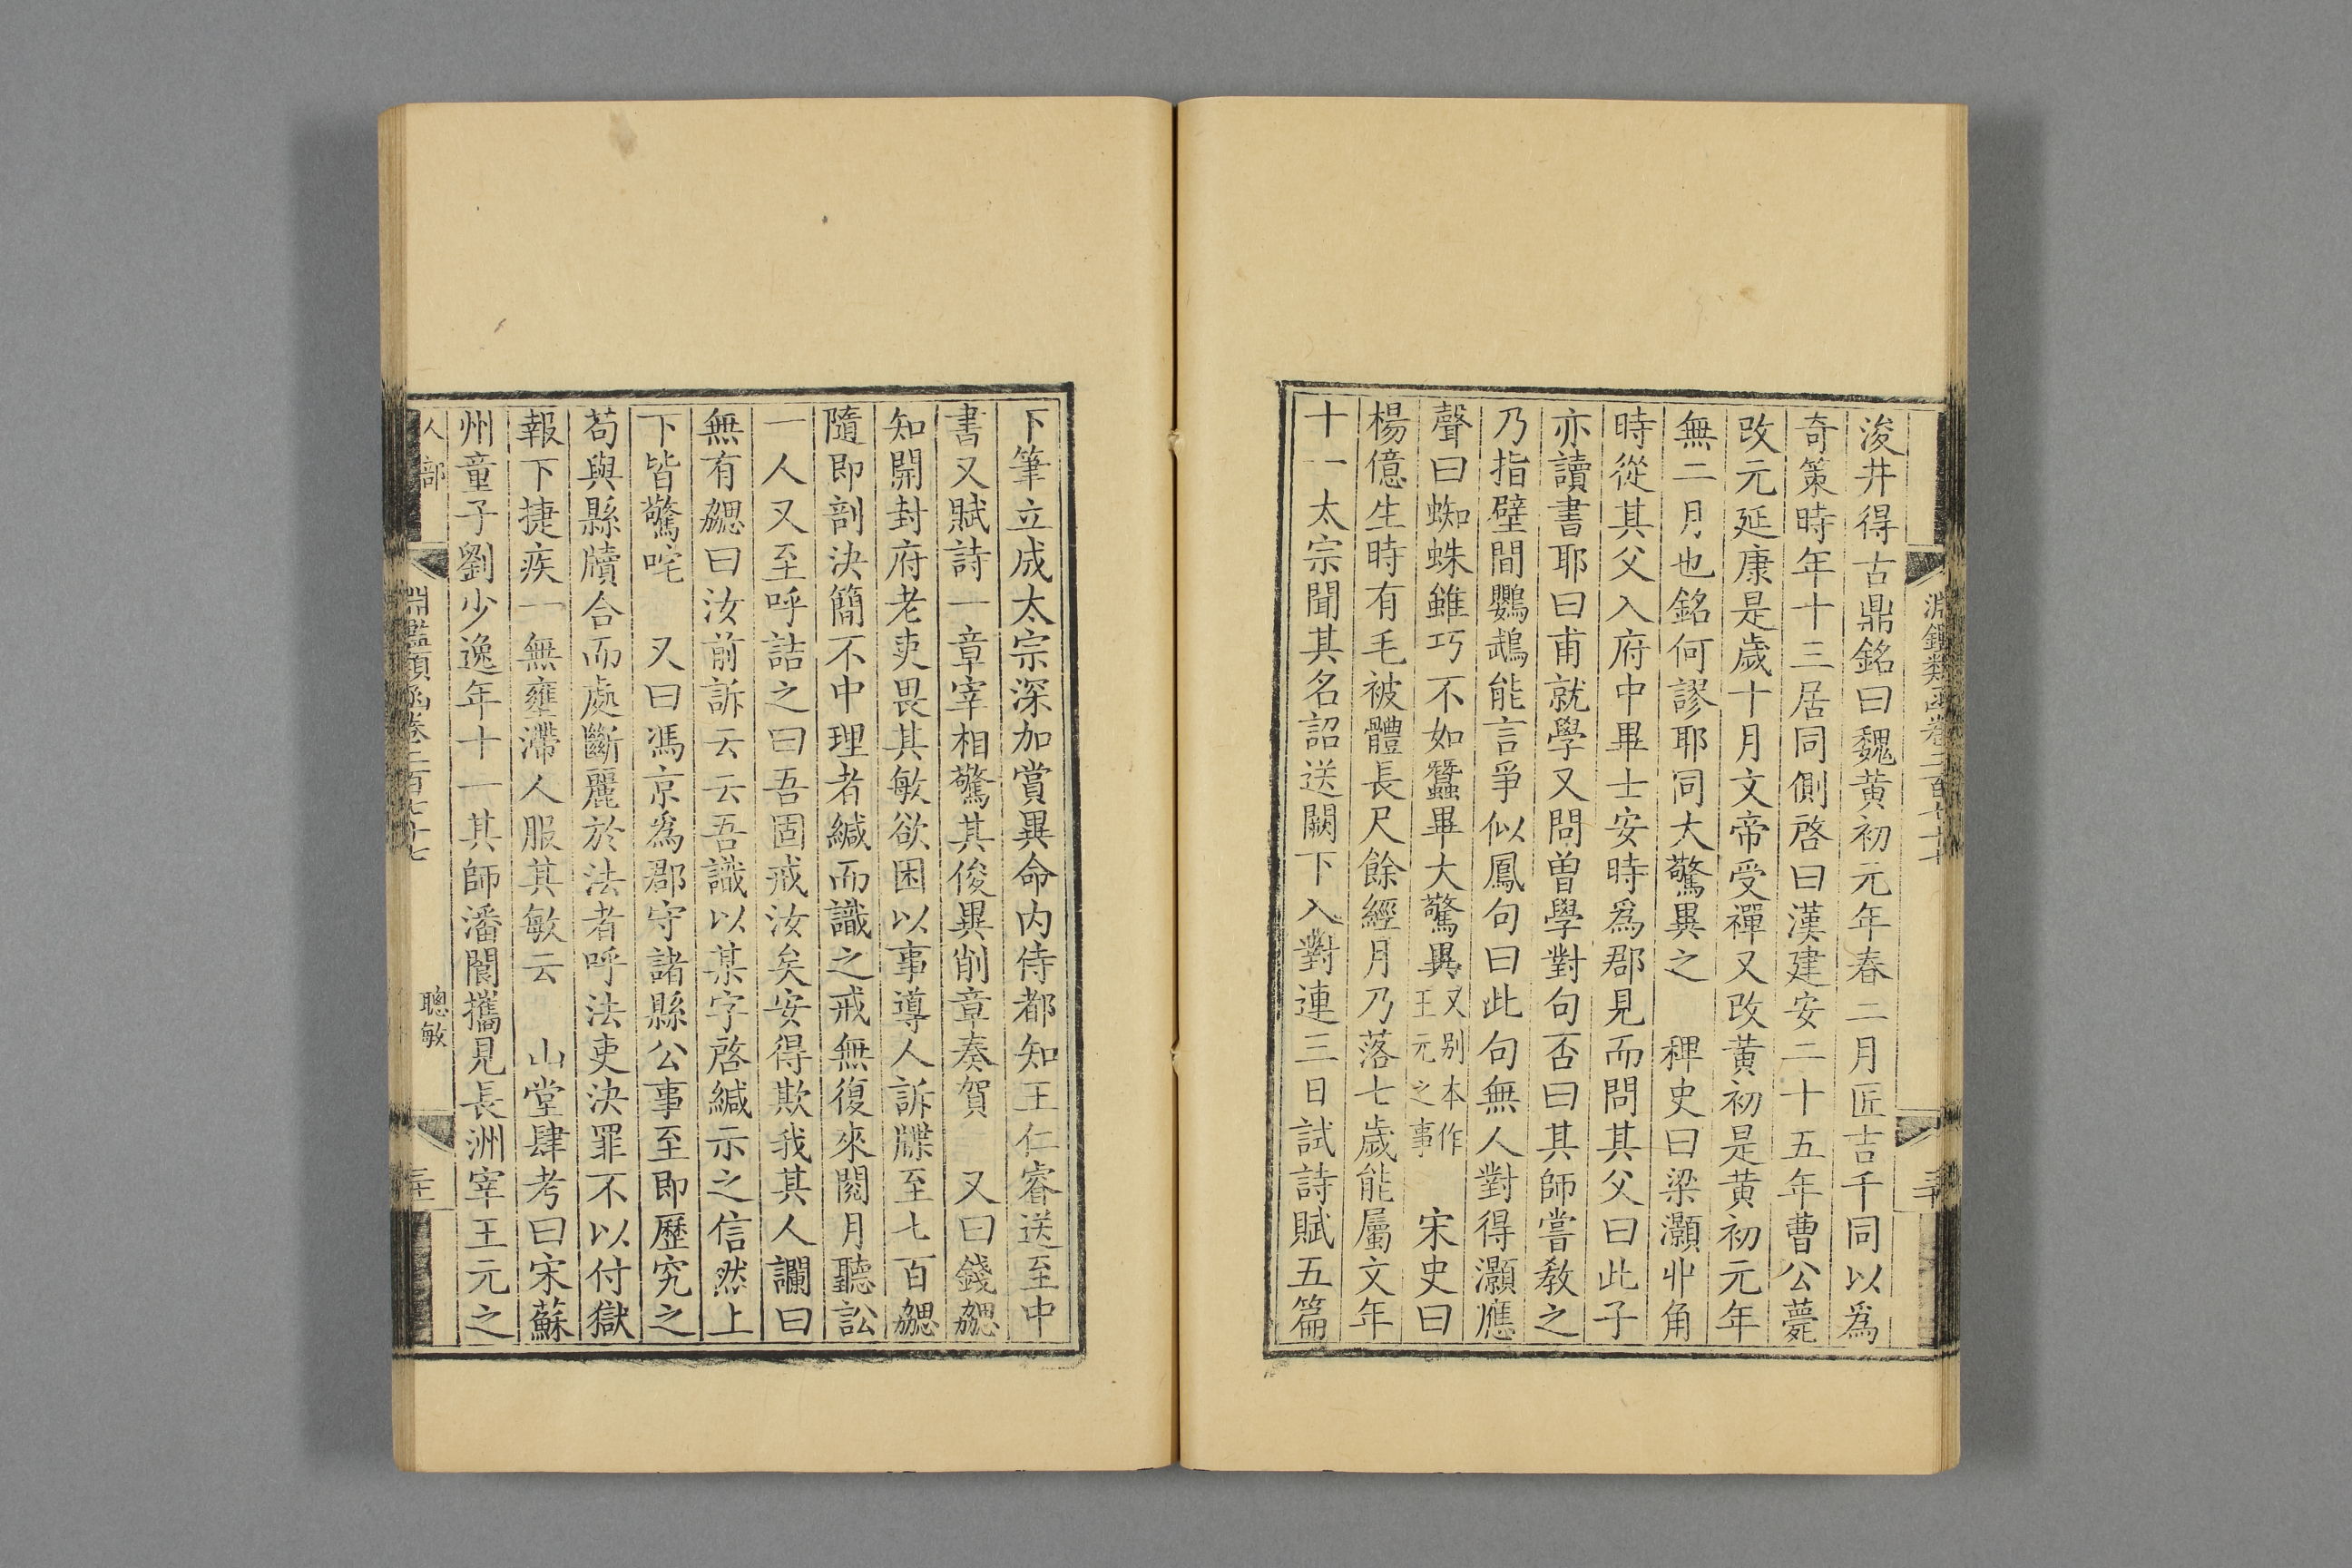 浚井得古鼎銘曰魏黄初元年春二月匠吉千同以爲
奇策時年十三居同側啓曰漢建安二十五年曹公薨
改元延康是歲十月文帝受禪又改黄初是黄初元年
無二月也銘何謬耶同大驚異之　稗史曰梁灝丱角
時從其父入府中畢士安時爲郡見而問其父曰此子
亦讀書耶曰甫就學又問曽學對句否曰其師嘗教之
乃指壁間鸚鵡能言爭似鳳句曰此句無人對得灝應
聲曰蜘蛛雖巧不如蠶畢大驚異又别本作王元之事　宋史曰
楊億生時有毛被體長尺餘經月乃落七歲能屬文年
十一太宗聞其名詔送闕下入對連三日試詩賦五篇
下筆立成太宗深加賞異命内侍都知王仁睿送至中
書又賦詩一章宰相驚其俊異削章奏賀　又曰錢勰
知開封府老吏畏其敏欲困以事導人訴牒至七百勰
隨即剖決簡不中理者緘而識之戒無復來閱月聽訟
一人又至呼詰之曰吾固戒汝矣安得欺我其人讕曰
無有勰曰汝前訴云云吾識以某字啓緘示之信然上
下皆驚咤　又曰馮京爲郡守諸縣公事至即歷究之
苟與縣牘合而處斷麗於法者呼法吏決罪不以付獄
報下捷疾一無壅滯人服其敏云　山堂肆考曰宋蘇
州童子劉少逸年十一其師潘閬攜見長洲宰王元之
人部
淵鑑類函卷二百七十七
聰敏